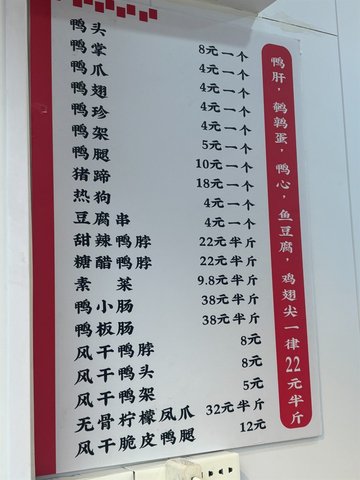 鸭头 8元一个
鸭掌 4元一个
鸭爪 4元一个
鸭翅 4元一个
鸭珍 4元一个
鸭架 5元一个
鸭腿 10元一个
猪蹄 18元一个
热狗 4元一个
豆腐串 4元一个
甜辣鸭脖 22元半斤
糖醋鸭脖 22元半斤
素 菜 9.8元半斤
鸭小肠 38元半斤
鸭板肠 38元半斤
风干鸭脖 8元
风干鸭头 8元
风干鸭架 5元
无骨柠檬凤爪 32元半斤
风干脆皮鸭腿 12元
鸭肝，鹌鹑蛋，鸭心，鱼豆腐，鸡翅尖一律22元半斤